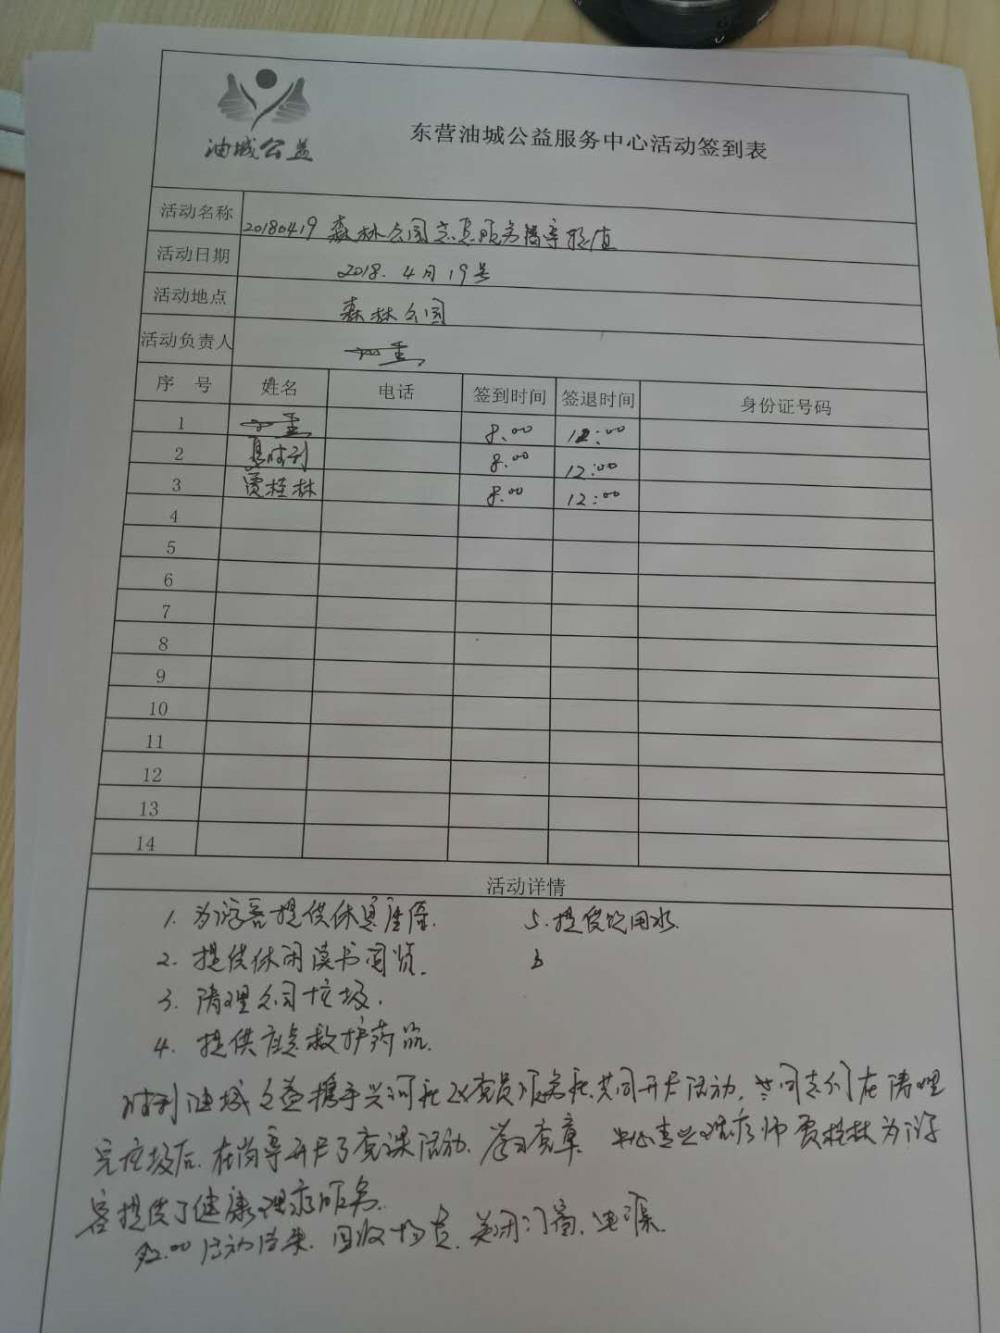 油城公益
东营油城公益服务中心活动签到表
活动名称 20180419 森林公园志愿服务岗亭执值
活动日期 2018. 4月19号
活动地点 森林公园
活动负责人
序 号 姓名 电话 签到时间 签退时间 身份证号码
1 8.00 12:00
2 胜利 8.00 12:00
3 贾桂林 8.00 12:00
4
5
6
7
8
9
10
11
12
13
14
活动详情
1. 为游客提供休息座位. 5. 提供饮用水.
2. 提供休闲读书阅览.
3. 清理公园垃圾.
4. 提供应急救护药品.
胜利油城公益携手兴河社区党员服务社共同开展活动. 共同志们在清理
完垃圾后. 在岗亭开展了党课活动. 学习党章. 中心专业理疗师贾桂林为游
客提供了健康理疗服务.
12.00 活动结束. 回收物资. 关闭门窗. 电源.